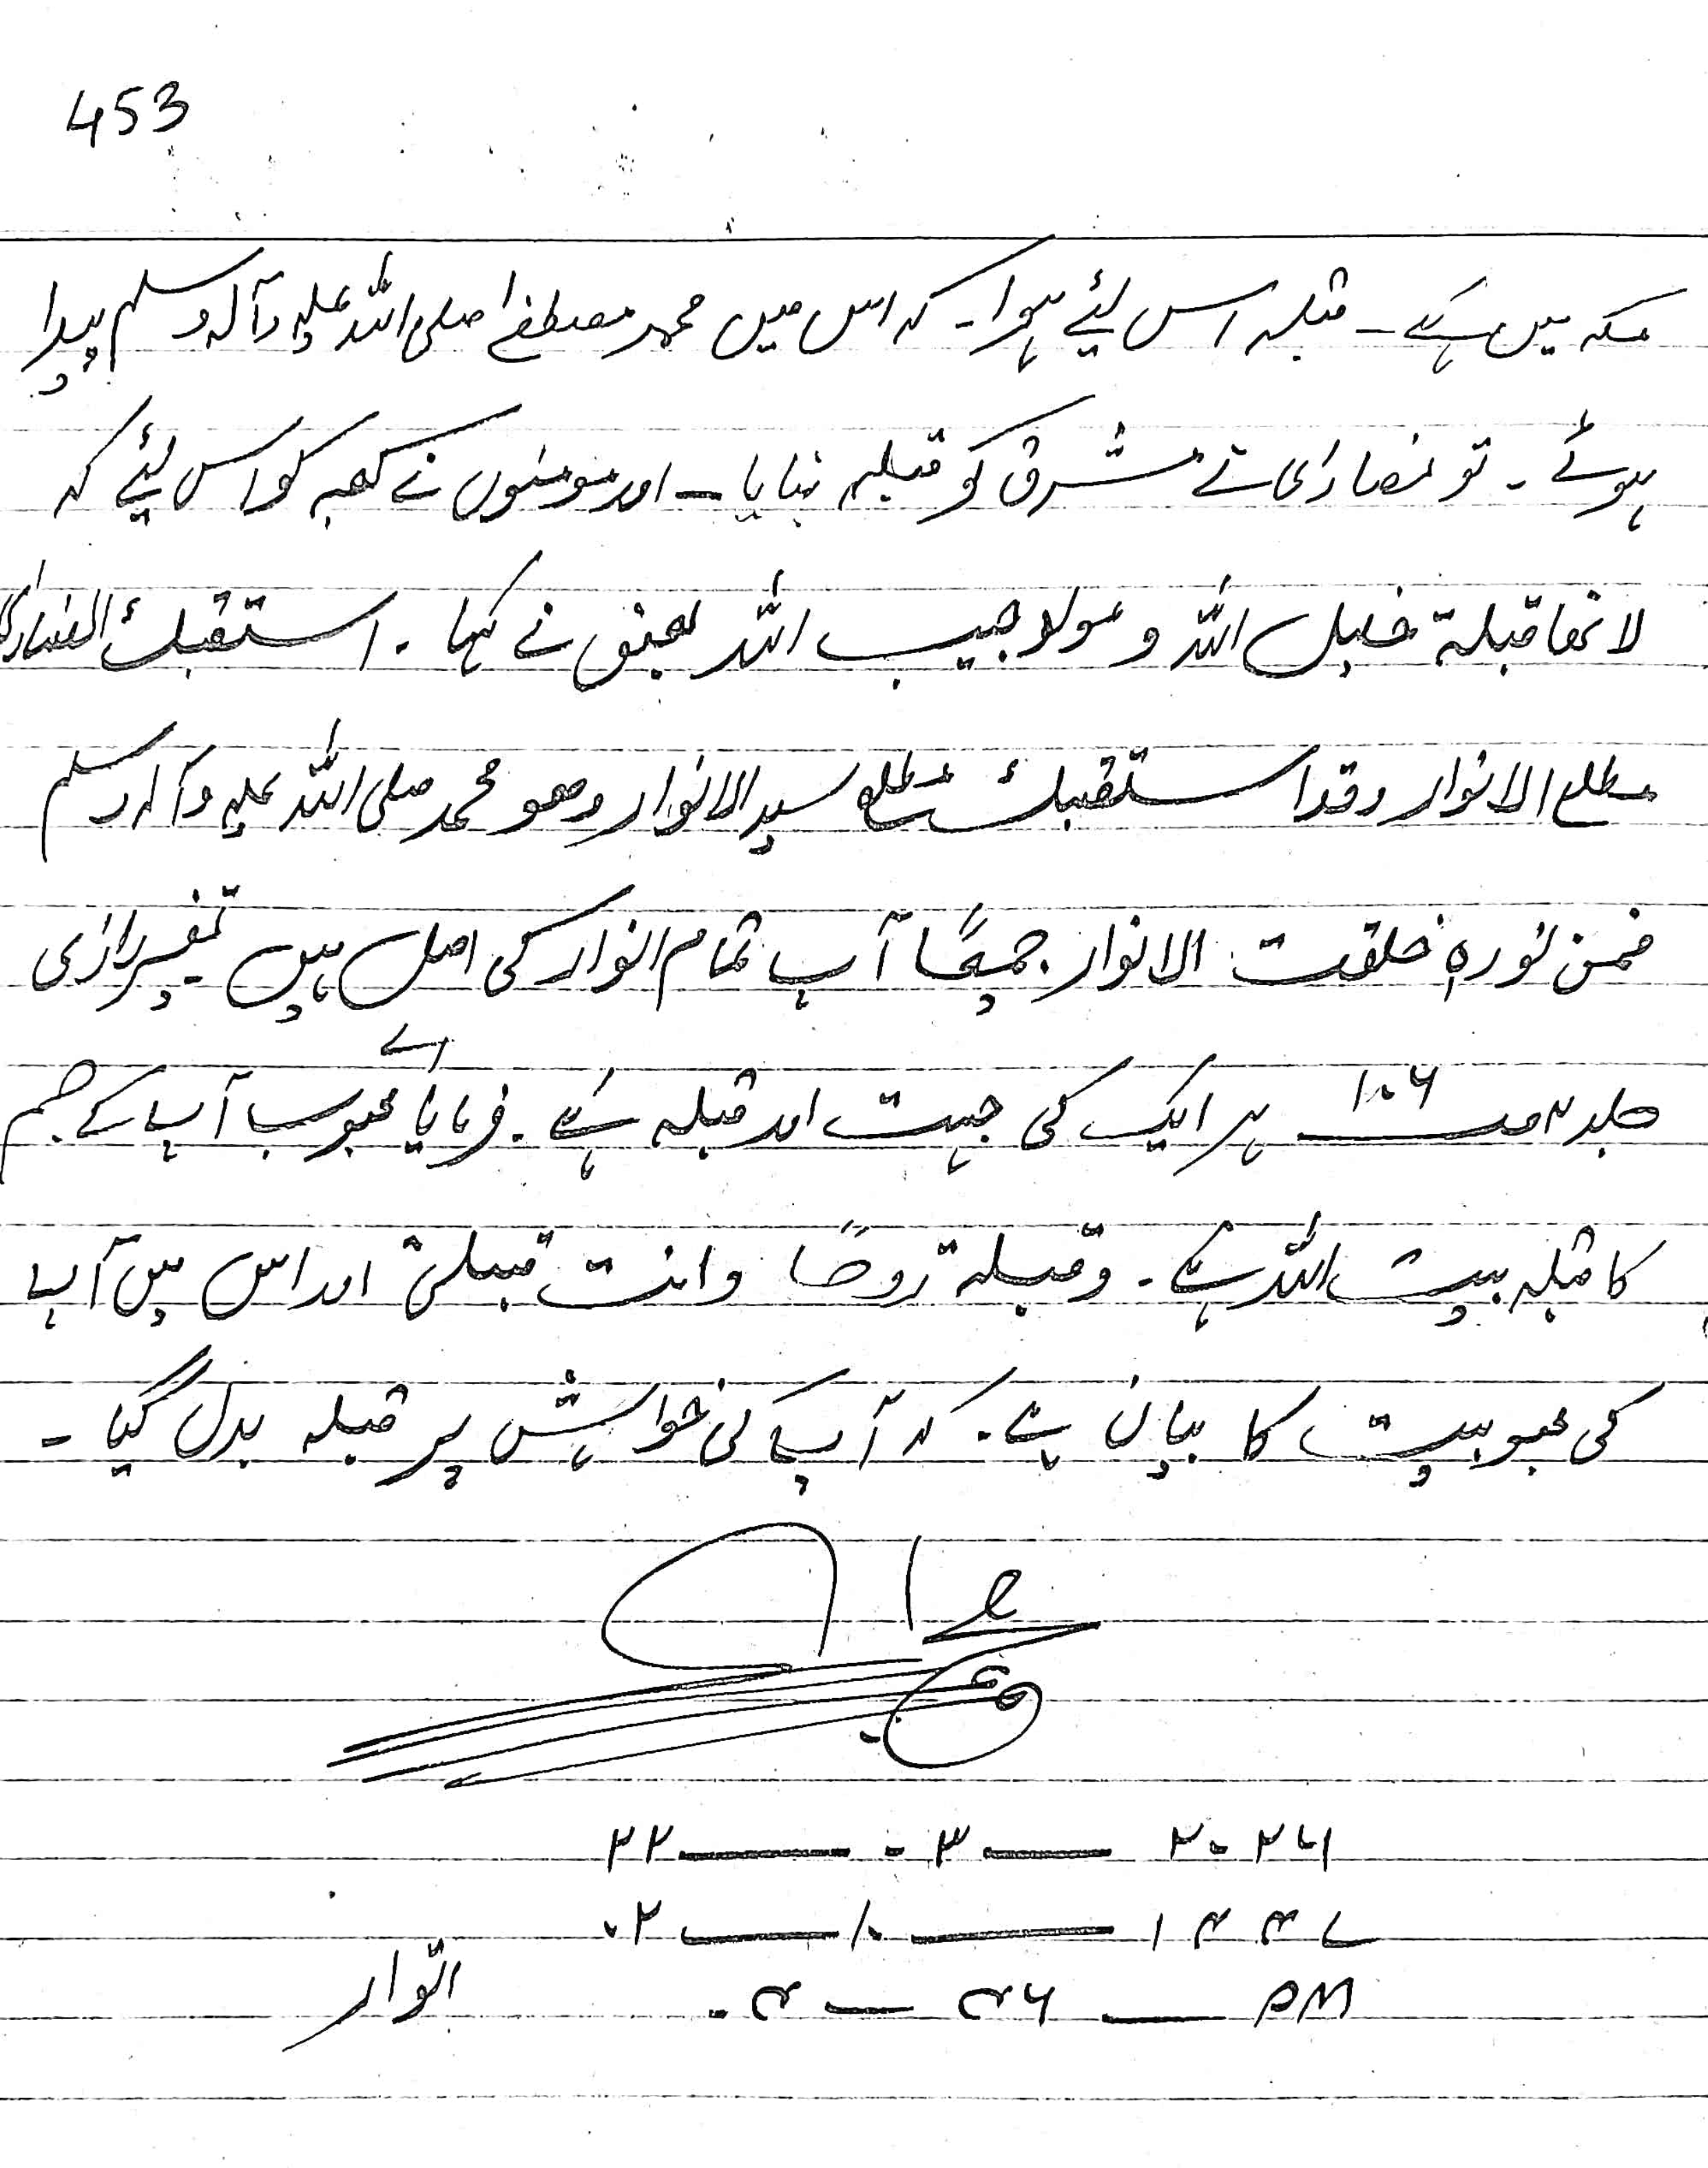 453
مکہ میں ہے ۔ قبلہ اس لیئے ہوا ۔ کہ اس میں محمد مصطفےٰ صلی اللہ علیہ وآلہ وسلم پیدا
ہوئے ۔ تو نصاریٰ نے مشرق کو قبلہ بنایا ۔ اور مومنوں نے کعبہ کو اس لیئے کہ
لانھا قبلة خلیل اللہ و مولد حبیب اللہ بعض نے کہا ۔ استقبلت النصاریٰ
مطلع الانوار وقد استقبلت مطلع سید الانوار وھو محمد صلی اللہ علیہ وآلہ وسلم
فمن نورہٖ خلقت الانوار جمیعًا آپ تمام انوار کی اصل ہیں تفسیر رازی
جلد ۴ صـ ۱۰۶ ہر ایک کی جہت اور قبلہ ہے ۔ فرمایا اے محبوب آپ کے جسم
کا قبلہ بیت اللہ ہے ۔ وقبلة روحنا وانت قبلتی اور اس میں آپ
کی محبوبیت کا بیان ہے ۔ کہ آپ کی خواہش پر قبلہ بدل گیا ۔
۲۲ — ۰۳ — ۲۰۲۶
۰۲ — ۱۰ — ۱۴۴۷
۰۴ — ۴۶ — PM اتوار